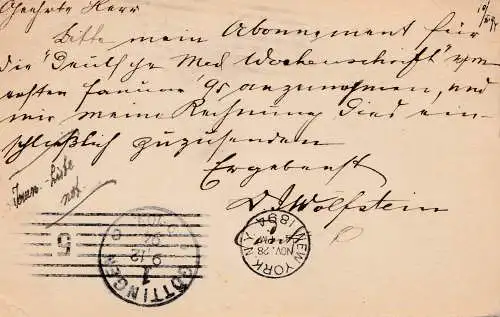 Geehrter Herr
Bitte mein Abonnement für
die "Deutsche Med Wochenschrift" vom
ersten Januar 95 anzunehmen, und
mir meine Rechnung dies ein-
schließlich zuzusenden
Ergebenst
D. Wolfstein
Liste
not
5
GÖTTINGEN
9.12
1
NEW YORK N.Y.
NOV. 28
1894